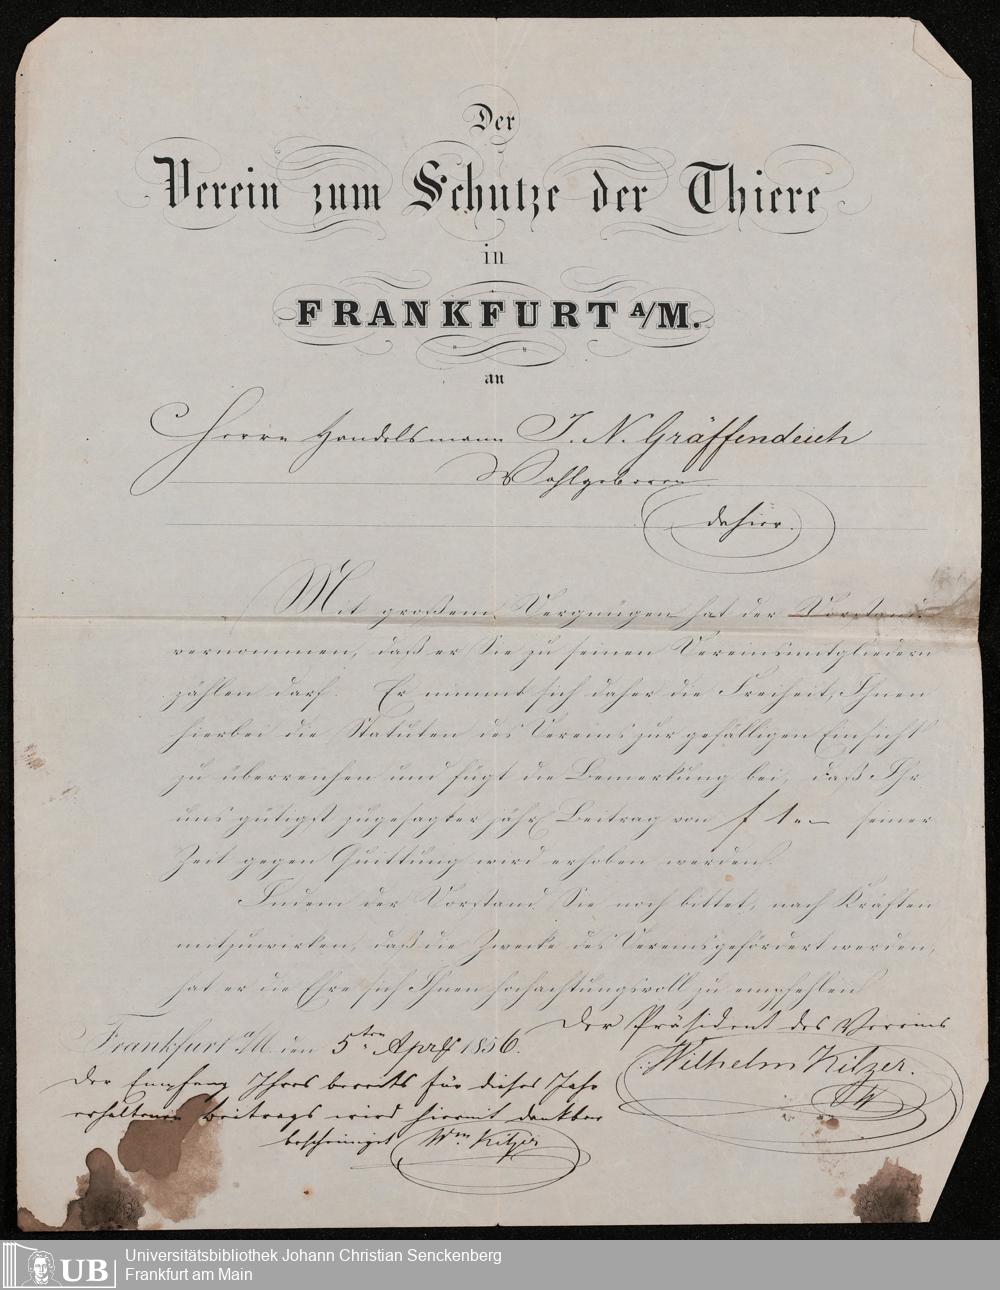 Der
Verein zum Schutze der Thiere
in
FRANKFURT A/M.
an
Herrn Handelsmann J. N. Gräffendeich
Wohlgeboren
dahier.
Mit großem Vergnügen hat der Vorstand
vernommen, daß er Sie zu seinen Vereinsmitgliedern
zählen darf. Er nimmt sich daher die Freiheit, Ihnen
hierbei die Statuten des Vereins zur gefälligen Einsicht
zu überreichen und fügt die Bemerkung bei, daß Ihr
uns gütigst zugesagter jährl. Beitrag von f 1.- seiner
Zeit gegen Quittung wird erhoben werden.
Indem der Vorstand Sie noch bittet, nach Kräften
mitzuwirken, daß die Zwecke des Vereins gefördert werden,
hat er die Ehre sich Ihnen hochachtungsvoll zu empfehlen
Frankfurt a/M. den 5ten April 1856.
Der Präsident des Vereins
Wilhelm Kitzer.
Der Empfang Ihres bereits für dieses Jahr
erhaltenen Beitrags wird hiermit dankbar
bescheinigt Wm. Kitzer
UB
Universitätsbibliothek Johann Christian Senckenberg
Frankfurt am Main